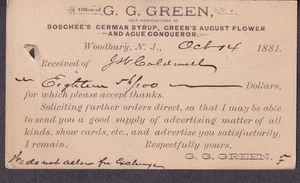 Office of G. G. GREEN,
SOLE MANUFACTURER OF
BOSCHEE'S GERMAN SYRUP, GREEN'S AUGUST FLOWER
AND AGUE CONQUEROR.
Woodbury, N. J., Oct 14 1881.
Received of J W Caldwell
Eighteen 56/100 Dollars,
for which please accept thanks.
Soliciting further orders direct, so that I may be able
to send you a good supply of advertising matter of all
kinds, show cards, etc., and advertise you satisfactorily,
I remain. Respectfully yours,
G. G. GREEN.
We do not allow for Exchange